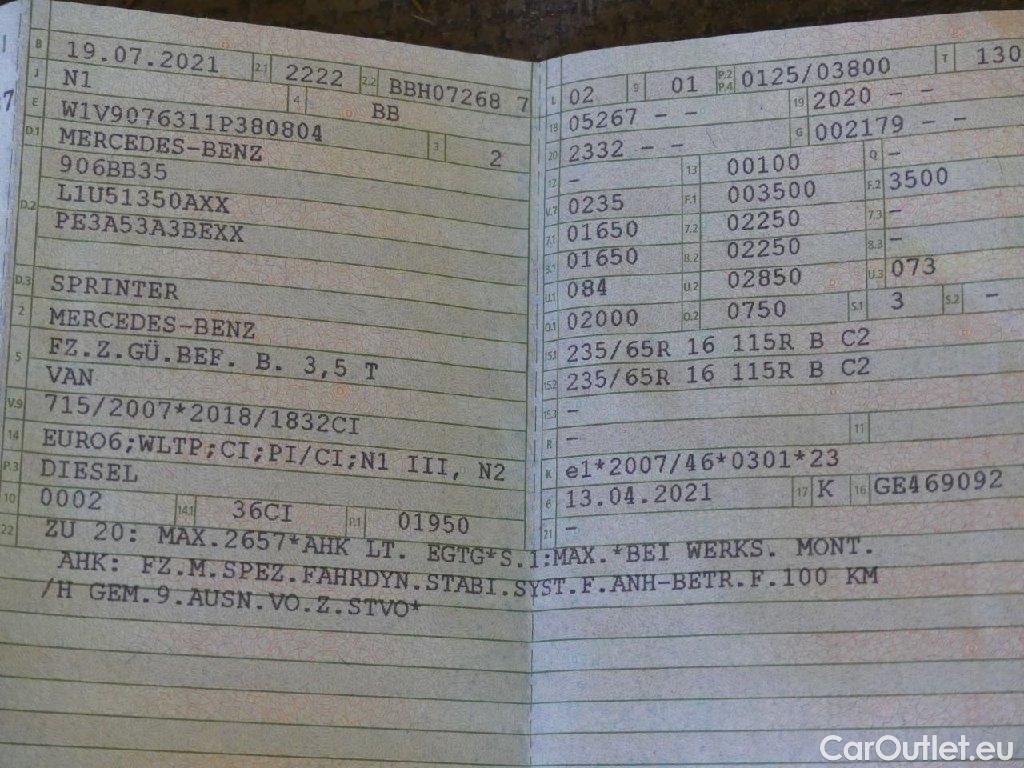 B 19.07.2021 2.1 2222 2.2 BBH07268 7
J N1 4 BB
E W1V9076311P380804 3 2
D.1 MERCEDES-BENZ
906BB35
D.2 L1U51350AXX
PE3A53A3BEXX
D.3 SPRINTER
2 MERCEDES-BENZ
5 FZ.Z.GÜ.BEF. B. 3,5 T
VAN
V.9 715/2007*2018/1832CI
14 EURO6;WLTP;CI;PI/CI;N1 III, N2
P.3 DIESEL
10 0002 14.1 36CI P.1 01950
L 02 9 01 P.2 P.4 0125/03800 T 130
18 05267 - - 19 2020 - -
20 2332 - - G 002179 - -
12 - 13 00100 Q -
V.7 0235 F.1 003500 F.2 3500
7.1 01650 7.2 02250 7.3 -
8.1 01650 8.2 02250 8.3 -
U.1 084 U.2 02850 U.3 073
O.1 02000 O.2 0750 S.1 3 S.2 -
15.1 235/65R 16 115R B C2
15.2 235/65R 16 115R B C2
15.3 -
R - 11
K e1*2007/46*0301*23
6 13.04.2021 17 K 16 GE469092
21 -
22 ZU 20: MAX.2657*AHK LT. EGTG*S.1:MAX.*BEI WERKS. MONT.
AHK: FZ.M.SPEZ.FAHRDYN.STABI.SYST.F.ANH-BETR.F.100 KM
/H GEM.9.AUSN.VO.Z.STVO*
CarOutlet.eu